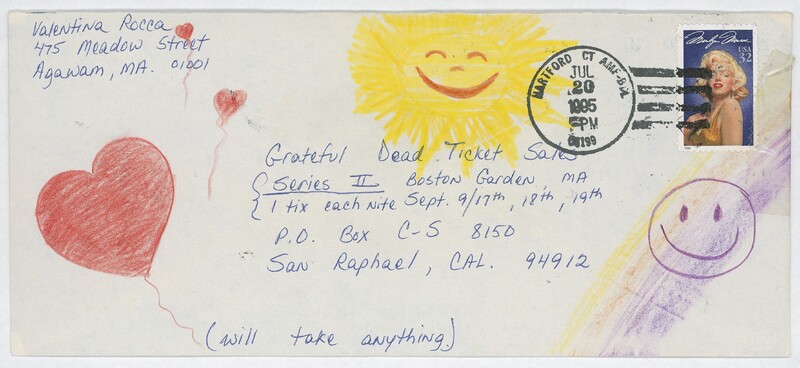 Valentina Rocca
475 Meadow Street
Agawam, MA. 01001
HARTFORD CT
JUL
20
1995
PM
06199
USA
32
Grateful Dead Ticket Sales
Series II Boston Garden, MA
1 tix each nite Sept. 9/17th, 18th, 19th
P.O. Box C-S 8150
San Raphael, CAL. 94912
(will take anything.)